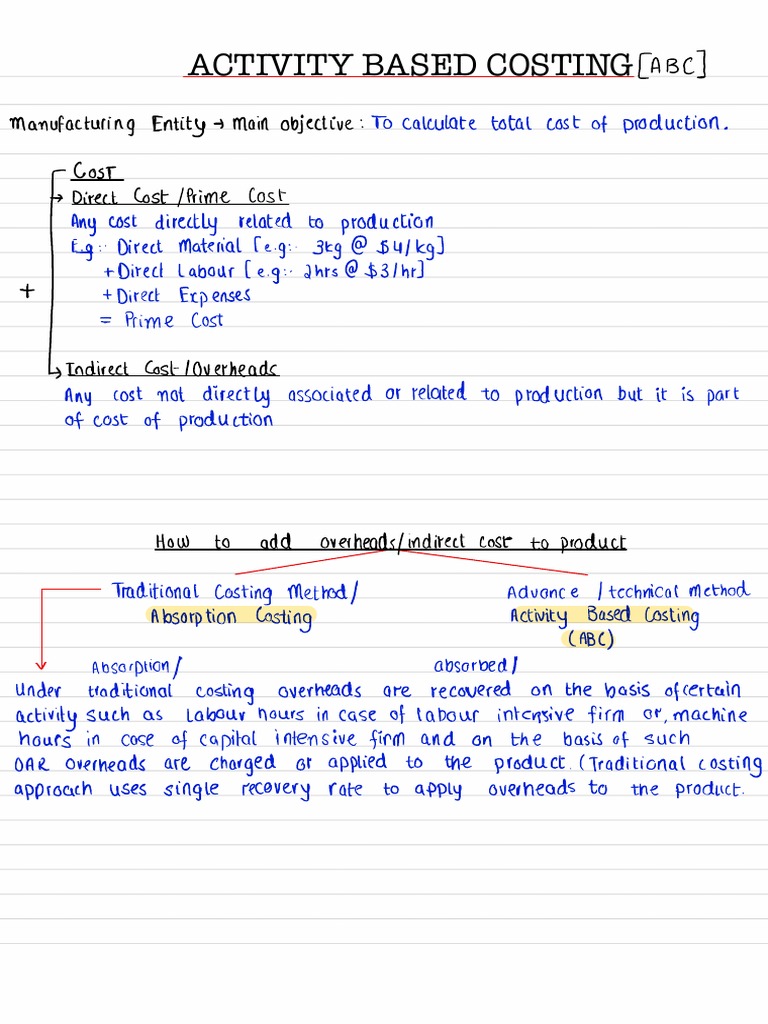 ACTIVITY BASED COSTING [ABC]
Manufacturing Entity → Main objective: To calculate total cost of production.
Cost
→ Direct Cost/Prime Cost
Any cost directly related to production
E.g:- Direct Material [e.g:- 3kg @ $4/kg]
+ Direct Labour [e.g:- 2hrs @ $3/hr]
+
+ Direct Expenses
= Prime Cost
→ Indirect Cost/Overheads
Any cost not directly associated or related to production but it is part
of cost of production
How to add overheads/indirect cost to product
Traditional Costing Method/
Absorption Costing
Advance / technical Method
Activity Based Costing
(ABC)
Absorption/ absorbed/
Under traditional costing overheads are recovered on the basis of certain
activity such as labour hours in case of labour intensive firm or, machine
hours in case of capital intensive firm and on the basis of such
OAR overheads are charged or applied to the product. (Traditional costing
approach uses single recovery rate to apply overheads to the product.